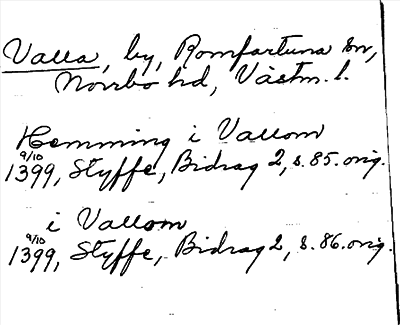 Valla, by, Romfartuna sn,
Norrbo hd, Västm. l.
Hemming i Vallom
9/10 1399, Styffe, Bidrag 2, s. 85. orig.
i Vallom
9/10 1399, Styffe, Bidrag 2, s. 86. orig.